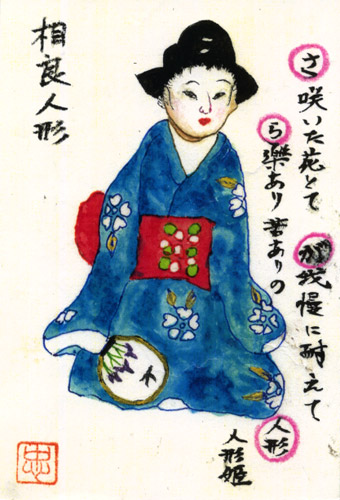 相良人形
さ咲いた花とて
ら樂あり苦ありの
が我慢に耐えて
人形
人形姫
忠